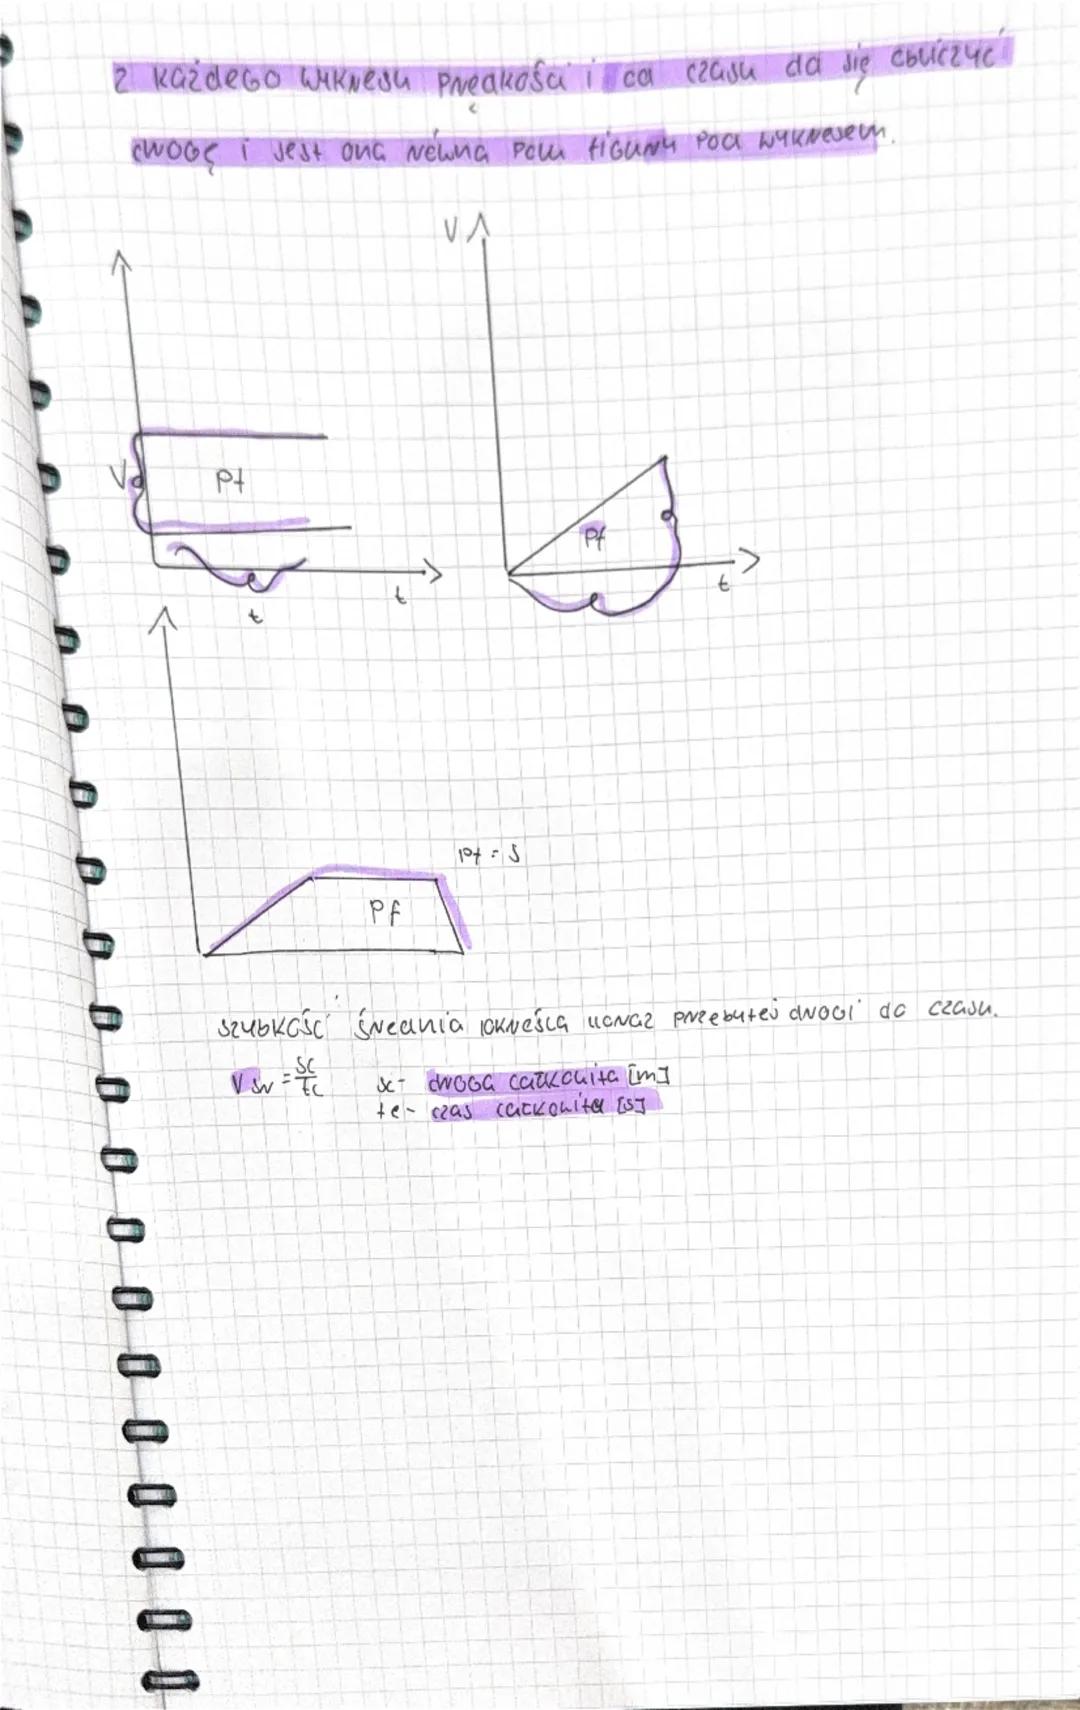 z każdego wykresu prędkości i od czasu da się obliczyć
drogę i jest ona równa polu figury pod wykresem.
V
V
Pf
Pf
t
t
t
Pf = S
Pf
szybkość średnia określa iloraz przebytej drogi do czasu.
Vśr = sc/tc
sc - droga całkowita [m]
tc - czas całkowity [s]